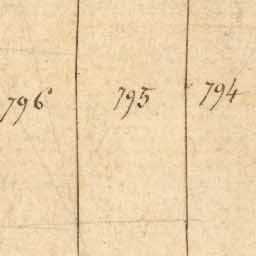 796 795 794